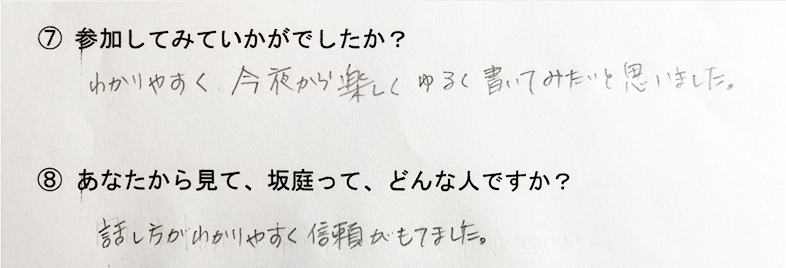 ⑦ 参加してみていかがでしたか？
わかりやすく 今夜から楽しく ゆるく書いてみたいと思いました。
⑧ あなたから見て、坂庭って、どんな人ですか？
話し方がわかりやすく信頼がもてました。